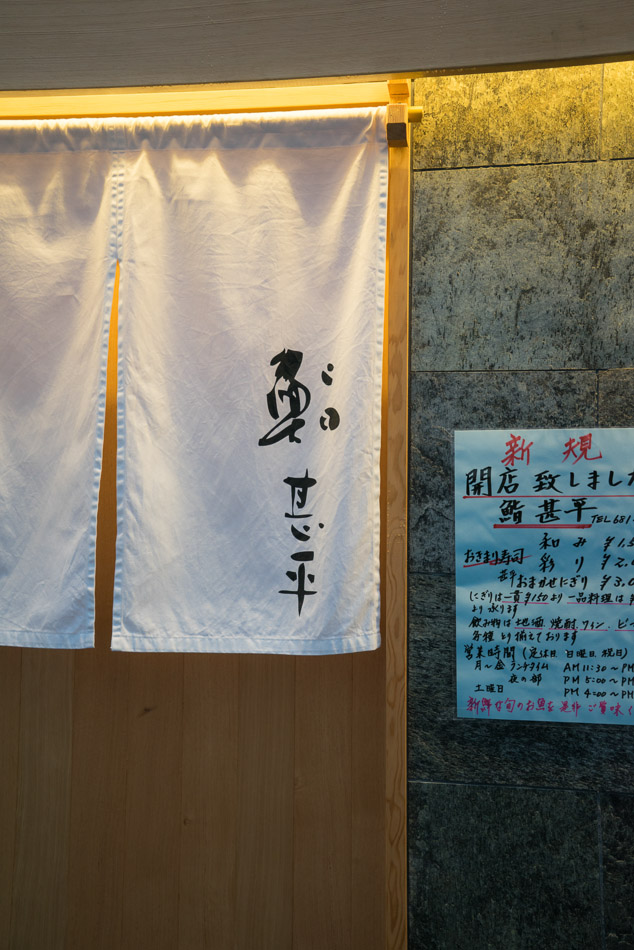 鮨
甚平
新規
開店致しました
鮨 甚平 TEL 681
和み ¥1.5
おきまり寿司 彩り ¥2.0
甚平おまかせにぎり ¥3.0
にぎりは一貫¥150より 一品料理は
より承ります
飲み物は地酒、焼酎、ワイン、ビー
各種とり揃えております
営業時間(定休日 日曜日、祝日)
月~金 ランチタイム AM 11:30~PM
夜の部 PM 5:00~PM
土曜日 PM 4:00~PM
新鮮な旬のお魚を是非ご賞味